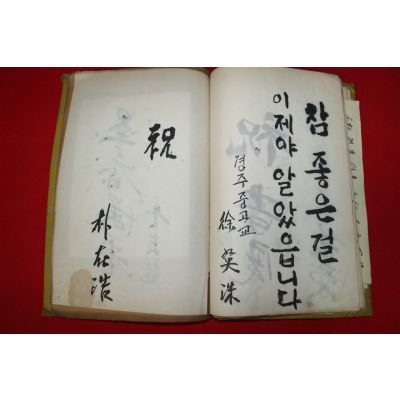 참 좋은걸
이제야 알았읍니다
경주중고교
徐英洙
祝
朴在浩